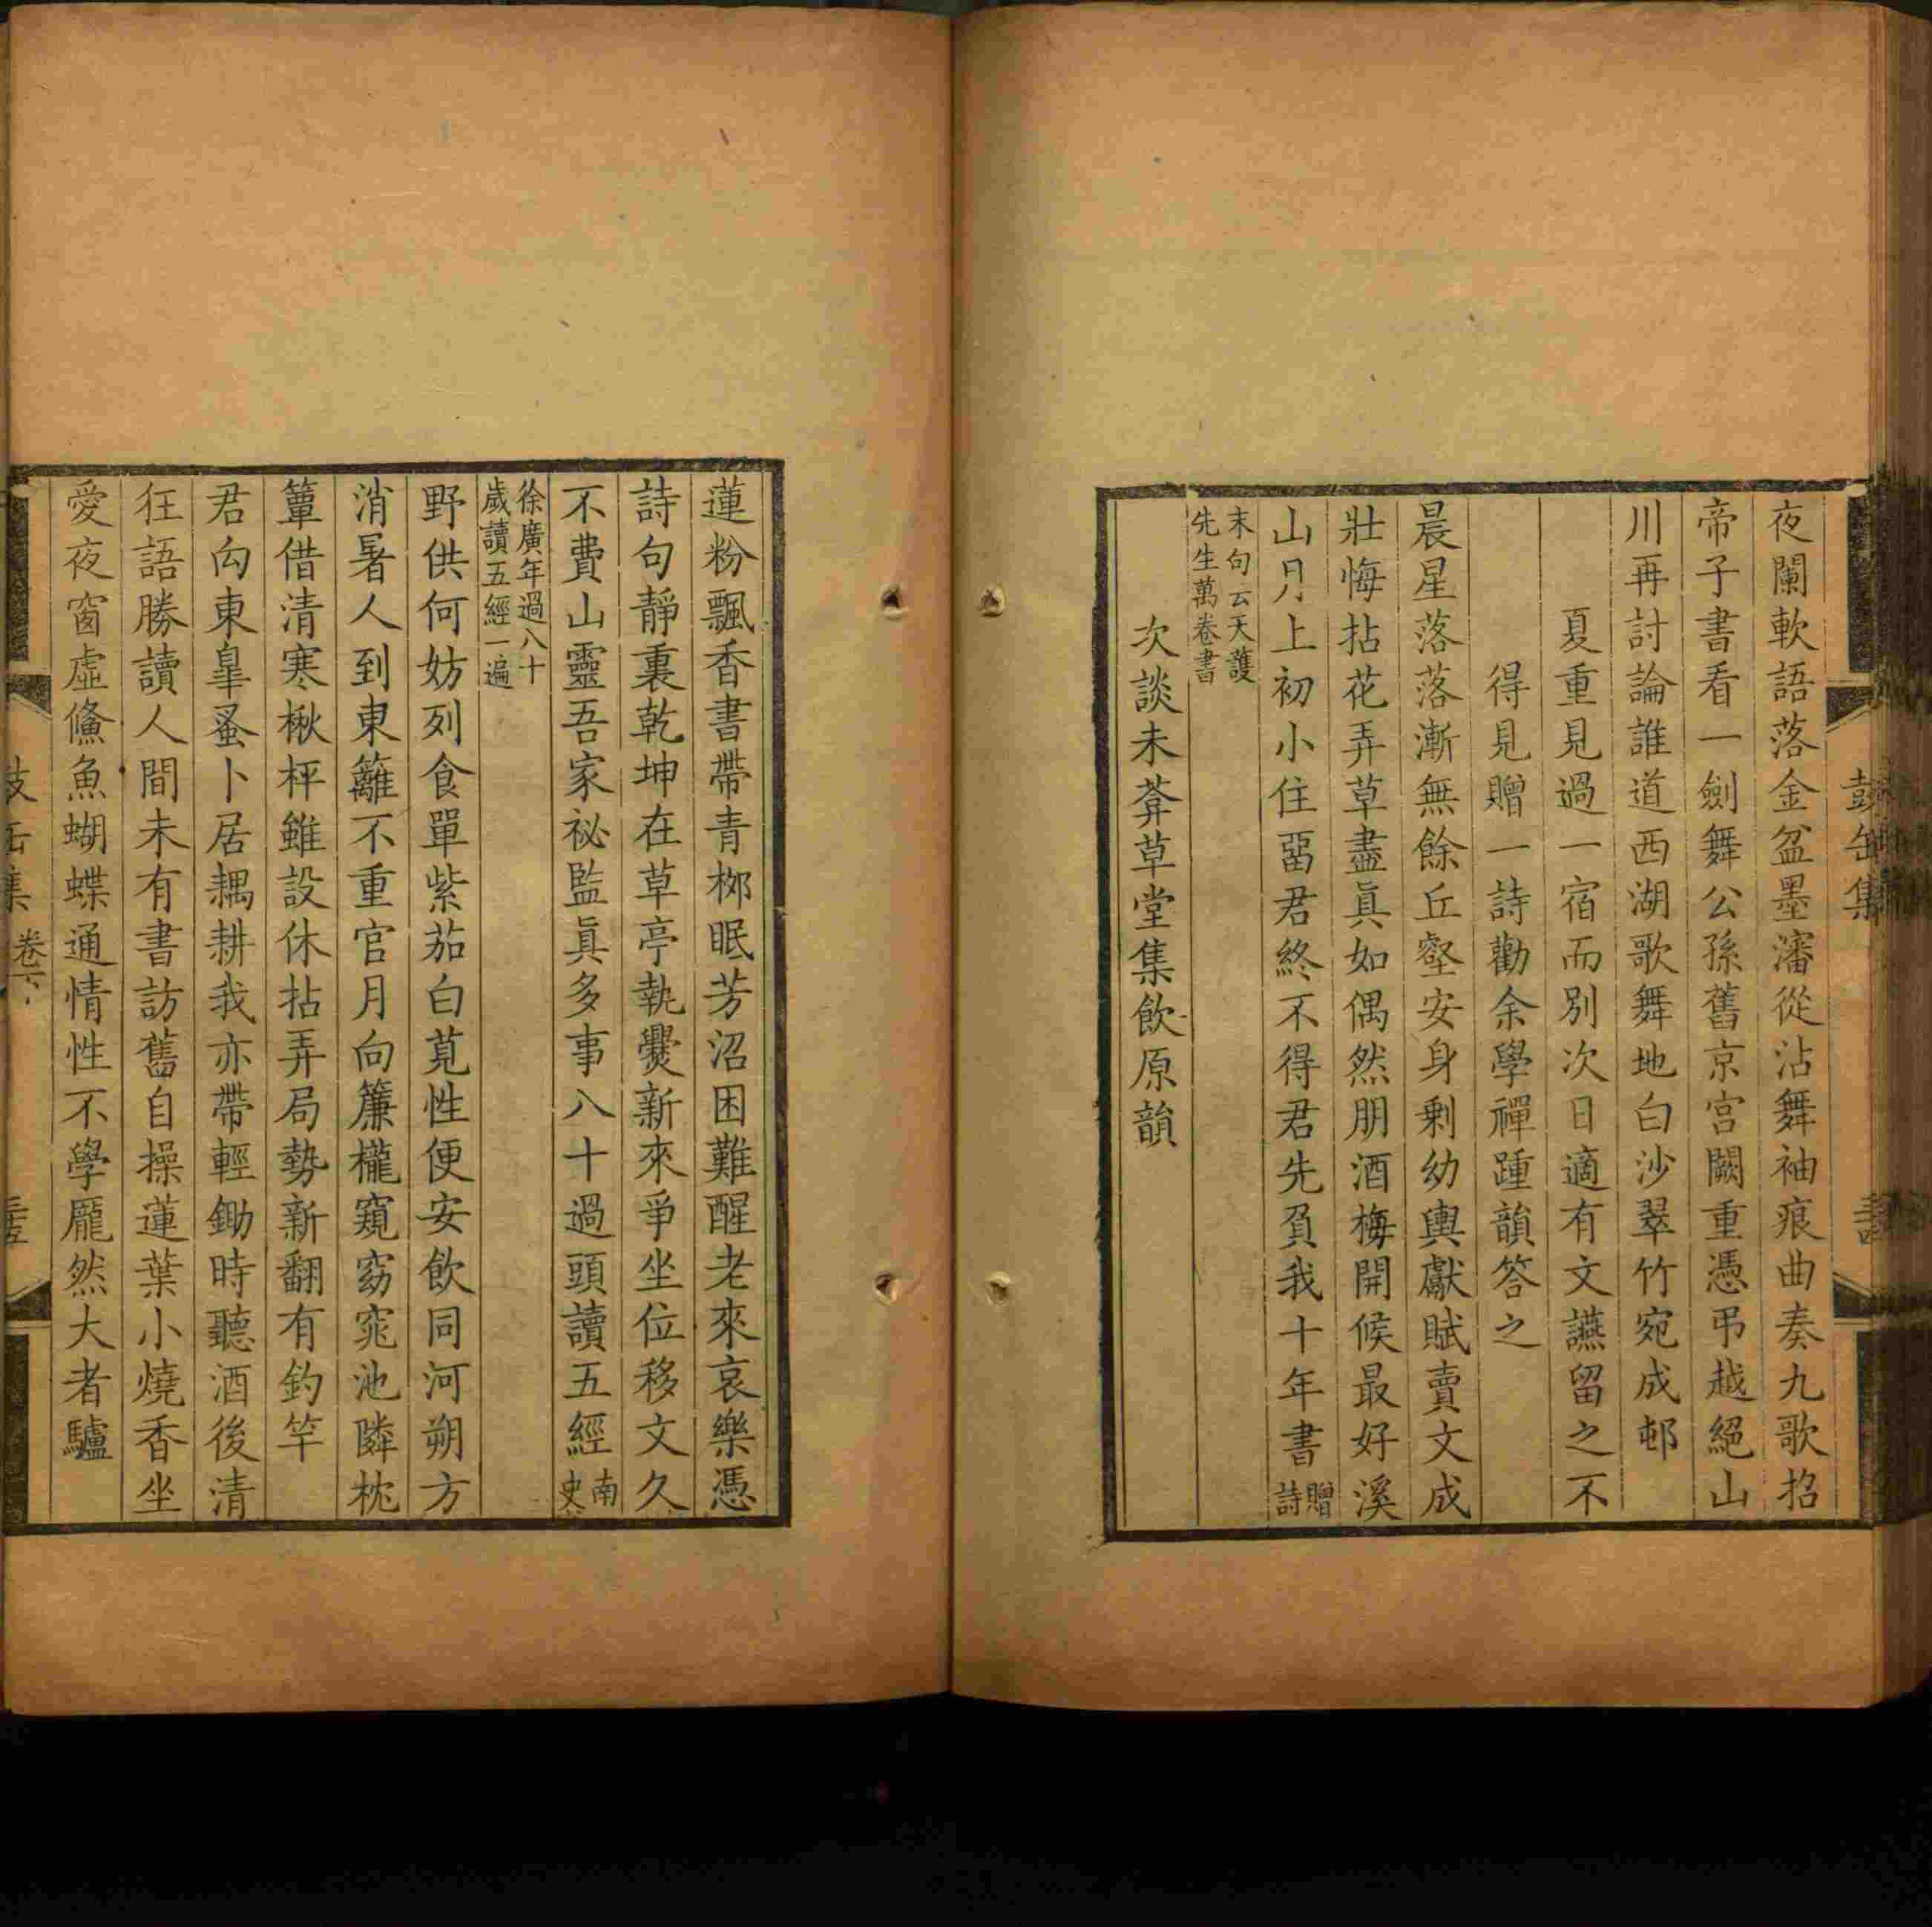 夜闌軟語落金盆墨瀋從沾舞袖痕曲奏九歌招
帝子書看一劍舞公孫舊京宮闕重憑弔越絕山
川再討論誰道西湖歌舞地白沙翠竹宛成邨
夏重見過一宿而別次日適有文讌留之不
得見贈一詩勸余學禪踵韻答之
晨星落落漸無餘丘壑安身剩幼輿獻賦賣文成
壯悔拈花弄草盡眞如偶然朋酒梅開候最好溪
山月上初小住畱君終不得君先負我十年書贈
詩
末句云天護
先生萬卷書
次談未葊草堂集飲原韻
蓮粉飄香書帶青梛眠芳沼困難醒老來哀樂憑
詩句靜裏乾坤在草亭執爨新來爭坐位移文久
不費山靈吾家祕監眞多事八十過頭讀五經南
史
徐廣年過八十
歲讀五經一遍
野供何妨列食單紫茄白莧性便安飲同河朔方
消暑人到東籬不重官月向簾櫳窺窈窕池隣枕
簟借清寒楸枰雖設休拈弄局勢新翻有釣竿
君向東臯蚤卜居耦耕我亦帶輕鋤時聽酒後清
狂語勝讀人間未有書訪舊自操蓮葉小燒香坐
愛夜窗虛鯈魚蝴蝶通情性不學龎然大者驢
卷下